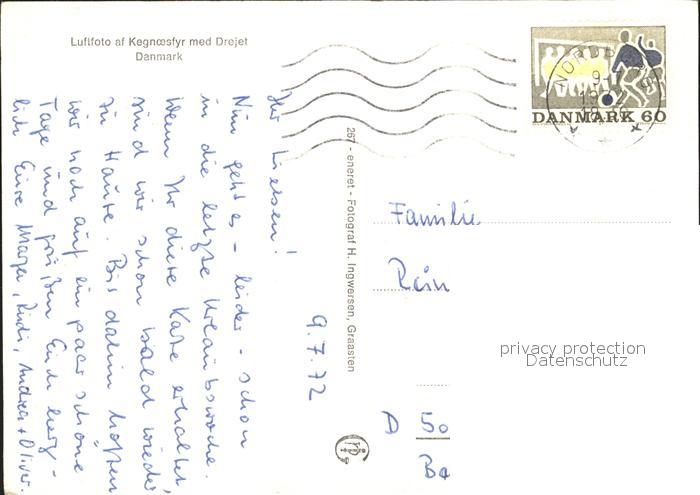 Luftfoto af Kegnœsfyr med Drejet
Danmark
DANMARK 60
267 - eneret - Fotograf H. Ingwersen, Graasten
9.7.72
Ihr Lieben!
Nun geht es - leider - schon
in die letzte Urlaubswoche.
Wenn Ihr diese Karte erhaltet,
sind wir schon bald wieder
zu Hause. Bis dahin hoffen
wir noch auf ein paar schöne
Tage und grüßen Euch herz-
lich Eure Marga, Rudi, Andrea + Oliver.
Familie
Rein
D 50
Ba
privacy protection
Datenschutz